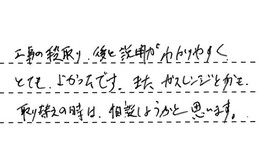 工事の段取り、後と説明がわかりやすく
とてもよかったです。また、ガスレンジとかを
取り替えの時は、相談しようかと思います。